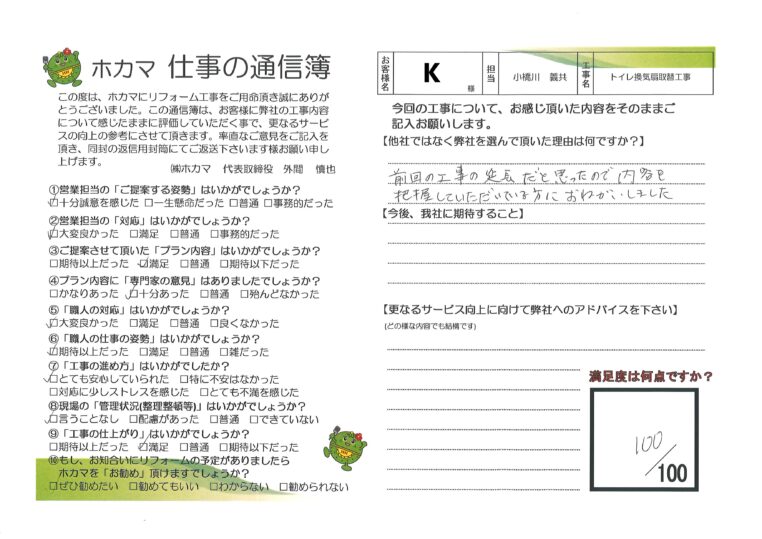 ホカマ 仕事の通信簿
この度は、ホカマにリフォーム工事をご用命頂き誠にありが
とうございました。この通信簿は、お客様に弊社の工事内容
について感じたままに評価していただく事で、更なるサービ
スの向上の参考にさせて頂きます。率直なご意見をご記入を
頂き、同封の返信用封筒にてご返送下さいます様お願い申し
上げます。
㈱ホカマ 代表取締役 外間 慎也
①営業担当の「ご提案する姿勢」はいかがでしょうか?
□十分誠意を感じた □一生懸命だった □普通 □事務的だった
②営業担当の「対応」はいかがでしょうか?
□大変良かった □満足 □普通 □事務的だった
③ご提案させて頂いた「プラン内容」はいかがでしょうか?
□期待以上だった □満足 □普通 □期待以下だった
④プラン内容に「専門家の意見」はありましたでしょうか?
□かなりあった □十分あった □普通 □殆んどなかった
⑤「職人の対応」はいかがでしょうか?
□大変良かった □満足 □普通 □良くなかった
⑥「職人の仕事の姿勢」はいかがでしょうか?
□期待以上だった □満足 □普通 □雑だった
⑦「工事の進め方」はいかがでしたか?
□とても安心していられた □特に不安はなかった
□対応に少しストレスを感じた □とても不満を感じた
⑧現場の「管理状況(整理整頓等)」はいかがでしょうか?
□言うことなし □配慮があった □普通 □できていない
⑨「工事の仕上がり」はいかがでしょうか?
□期待以上だった □満足 □普通 □期待以下だった
⑩もし、お知合いにリフォームの予定がありましたら
ホカマを「お勧め」頂けますでしょうか?
□ぜひ勧めたい □勧めてもいい □わからない □勧められない
お客様名 K 様 担当 小橋川 義共 工事名 トイレ換気扇取替工事
今回の工事について、お感じ頂いた内容をそのままご
記入お願いします。
【他社ではなく弊社を選んで頂いた理由は何ですか?】
前回の工事の延長だと思ったので内容を
把握していただいている方におねがいしました
【今後、我社に期待すること】
【更なるサービス向上に向けて弊社へのアドバイスを下さい】
(どの様な内容でも結構です)
満足度は何点ですか?
100
/100